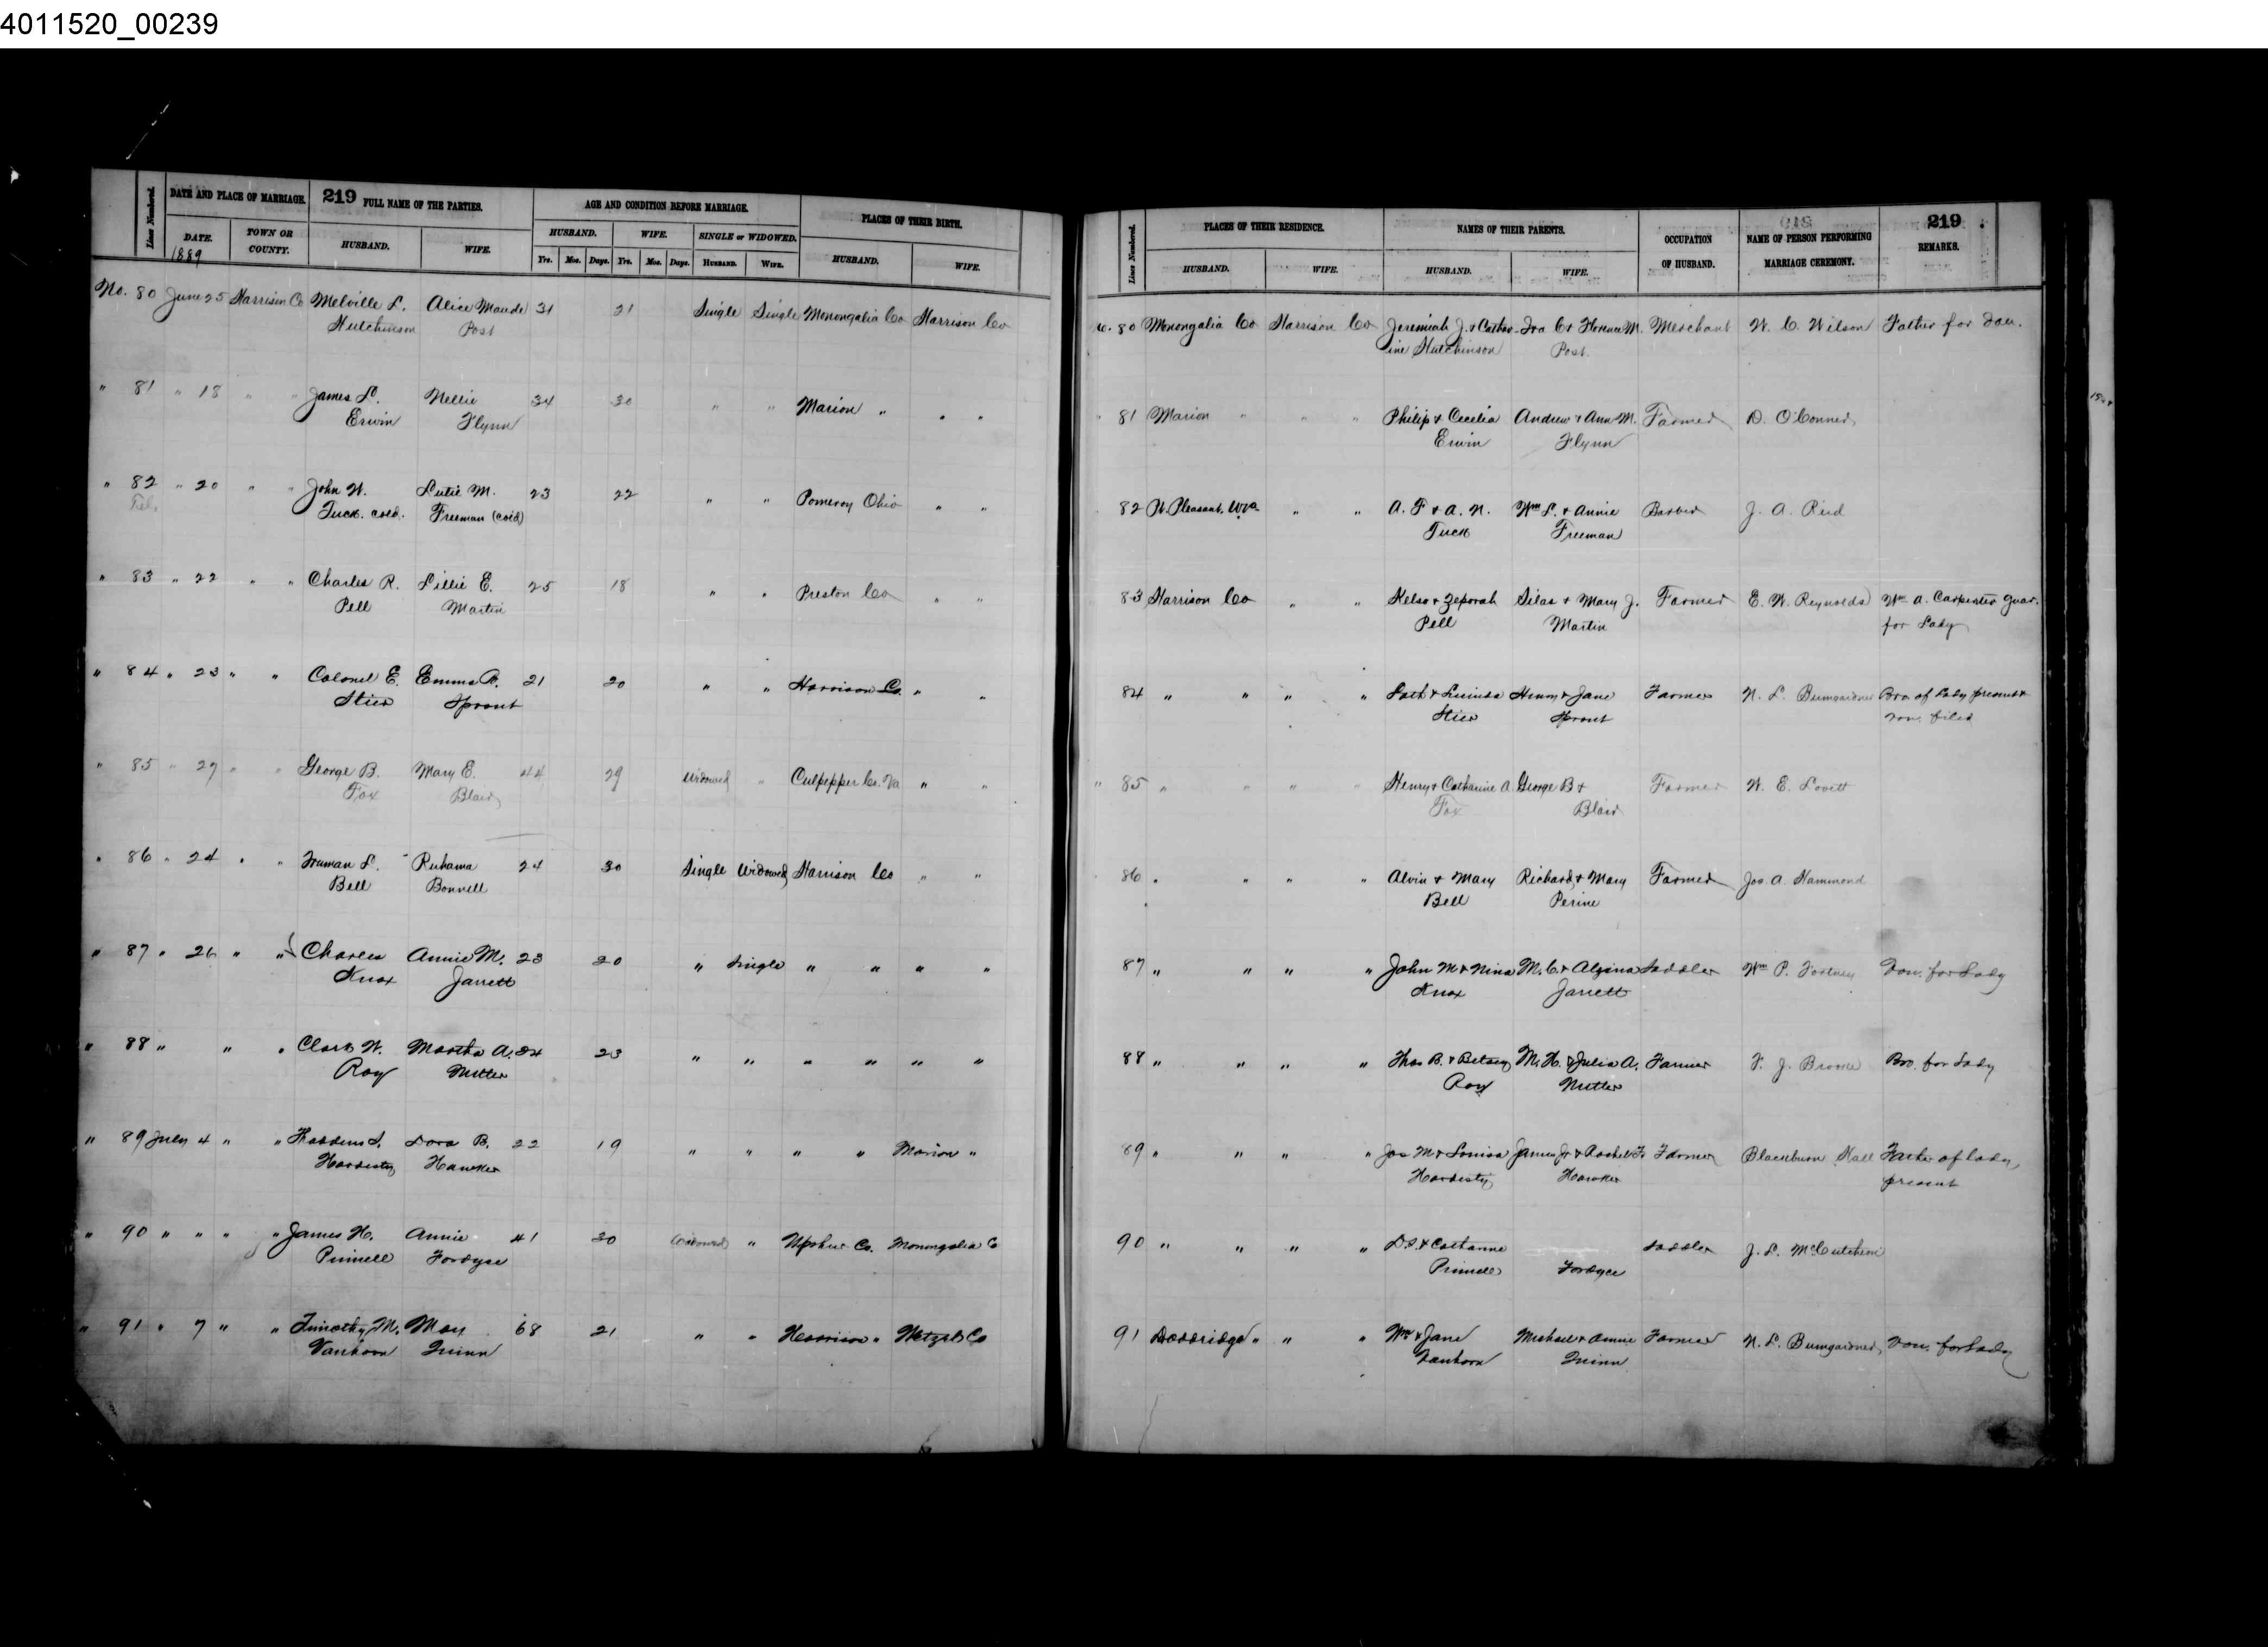 4011520_00239
219
Lines Numbered. DATE AND PLACE OF MARRIAGE. FULL NAME OF THE PARTIES. AGE AND CONDITION BEFORE MARRIAGE. PLACES OF THEIR BIRTH.
DATE. TOWN OR COUNTY. HUSBAND. WIFE. HUSBAND. WIFE. SINGLE or WIDOWED. HUSBAND. WIFE.
1889 Yrs. Mos. Days. Yrs. Mos. Days. HUSBAND. WIFE.
No. 80 June 25 Harrison Co Melville L. Alice Maude 31 21 Single Single Monongalia Co Harrison Co
Hutchinson Post
" 81 " 18 " " James L. Nellie 34 30 " " Marion " " "
Erwin Flynn
" 82 " 20 " " John W. Lutie M. 23 22 " " Pomeroy Ohio " "
Tuck. cold. Freeman (cold)
" 83 " 22 " " Charles R. Lillie E. 25 18 " " Preston Co " "
Pell Martin
" 84 " 23 " " Colonel E. Emma R. 21 20 " " Harrison Co. " "
Stier Sprout
" 85 " 27 " " George B. Mary E. 44 29 Widowed " Culpepper Co. Va " "
Fox Blair
" 86 " 24 " " Truman L. Ruhama 24 30 Single Widowed Harrison Co " "
Bell Bonnell
" 87 " 26 " " Charles Annie M. 23 20 " Single " " " "
Knox Jarrett
" 88 " " " Clark W. Martha A. 24 23 " " " " " "
Roy Nutter
" 89 July 4 " " Thaddeus S. Dora B. 22 19 " " " " Marion "
Hardesty Hawker
" 90 " " " " James H. Annie 41 30 Widowed " Upshur Co. Monongalia Co
Pinnell Fordyce
" 91 " 7 " " Timothy M. May 68 21 " " Harrison " Wetzel Co
Vanhorn Quinn
219
Lines Numbered. PLACES OF THEIR RESIDENCE. NAMES OF THEIR PARENTS. OCCUPATION OF HUSBAND. NAME OF PERSON PERFORMING MARRIAGE CEREMONY. REMARKS.
HUSBAND. WIFE. HUSBAND. WIFE.
No. 80 Monongalia Co Harrison Co Jeremiah J. & Cathar- Ira C & Florence M. Merchant W. C. Wilson Father for dau.
ine Hutchinson Post.
" 81 Marion " " " Philip & Cecelia Andrew & Ann M. Farmer D. O'Conner
Erwin Flynn
82 Pt. Pleasant, W.Va " " A. F & A. N. Wm L. & Annie Barber J. A. Reid
Tuck Freeman
83 Harrison Co " " Kelso & Zeporah Silas & Mary J. Farmer E. W. Reynolds Wm A. Carpenter guar.
Pell Martin for Lady
84 " " " " Henry & Jane Farmer N. L. Bumgardner Bro. of Lady present &
Stier Sprout filed
" 85 " " " " Henry & Catharine A. George B & Farmer W. E. Lovett
Fox Blair
86 " " " " Alvin & Mary Richard & Mary Farmer Jos. A. Hammond
Bell Perine
87 " " " " John M & Nina M. C. & Alzina Saddler Wm P. Fortney for Lady
Knox Jarrett
88 " " " " Thos B. & Betsey M. H. & Julia A. Farmer F. J. Brooke Bro. for Lady
Roy Nutter
89 " " " " Jos M & Louisa James J. & Rachel F. Farmer Blackburn Hall Father of lady
Hardesty Hawker present
90 " " " " D.S. & Catharine Saddler J. L. McCutcheon
Pinnell Fordyce
91 Doddridge " " " Wm & Jane Michael & Annie Farmer N. L. Bumgardner for Lady
Vanhorn Quinn